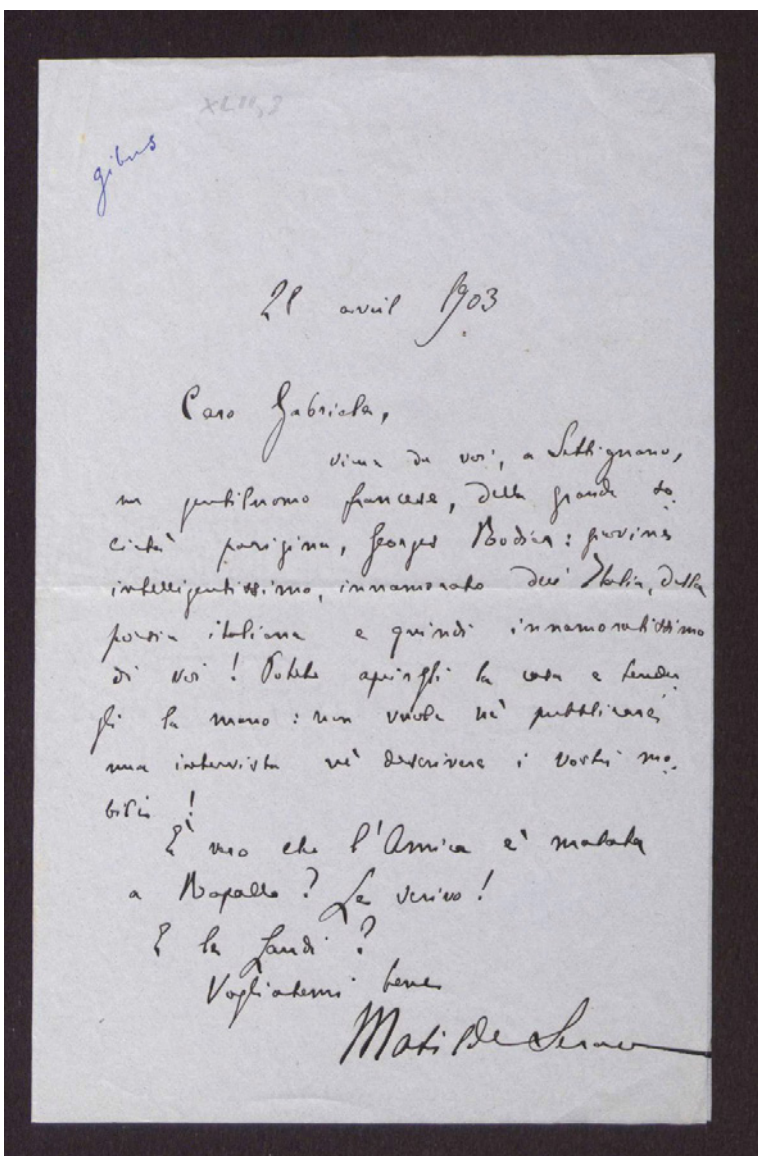 XLII,3
gibus
avril 1903
Caro Gabriele,
viene da voi, a Settignano,
un gentiluomo francese, della grande so-
cietà parigina, Georges : giovine
intelligentissimo, innamorato dell'Italia, della
poesia italiana e quindi innamoratissimo
di voi ! Potete aprirgli la casa e tender-
gli la mano : non vuole nè pubblicare
una intervista nè descrivere i vostri mo-
bili !
È vero che l'Amica è malata
a Rapallo ? Le scrivo !
E la Laudi ?
Vogliatemi bene
Matilde Serao